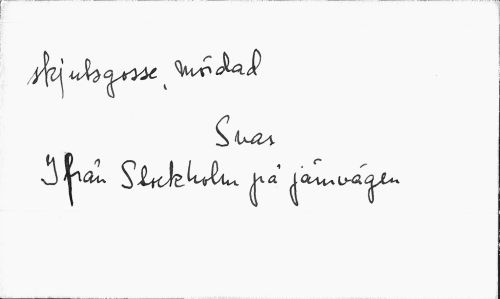 skjutsgosse, mördad
Svar
I från Stockholm på järnvägen